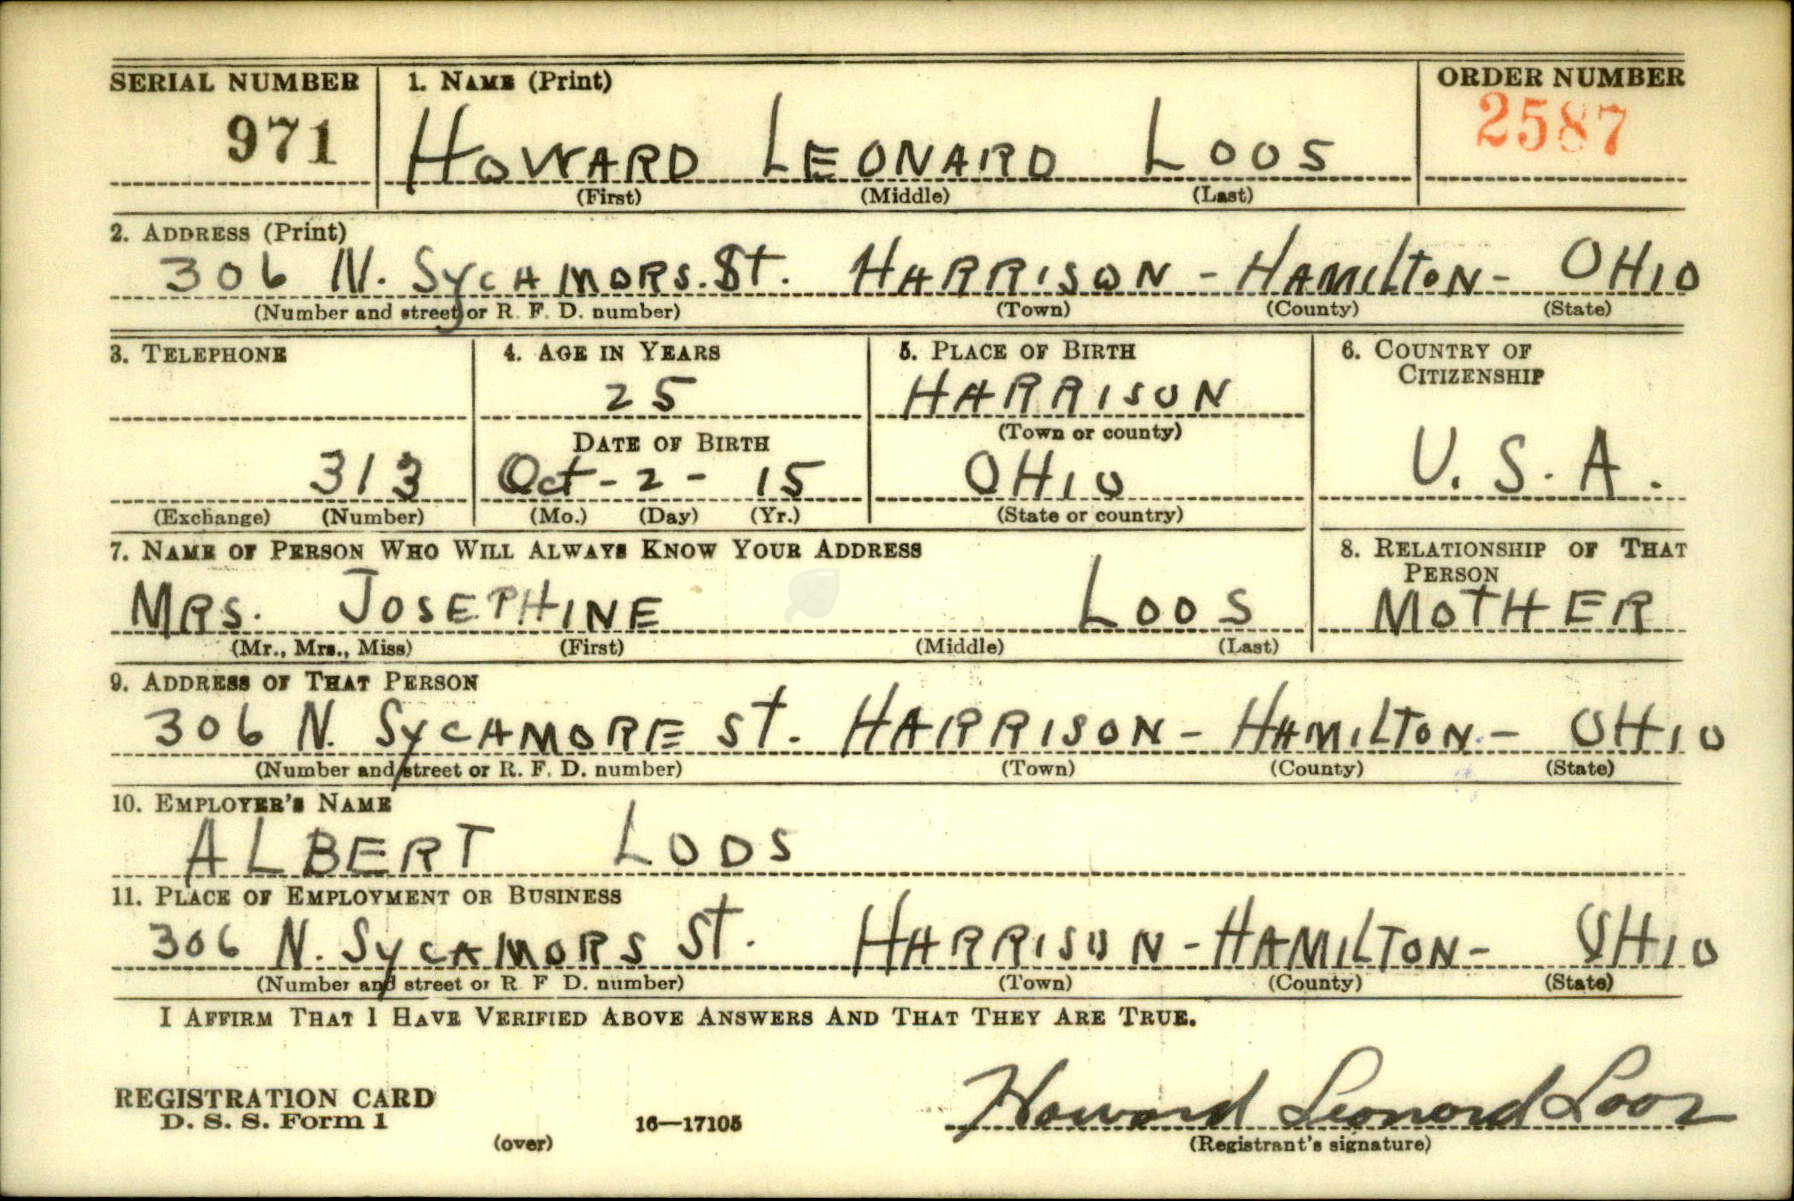 SERIAL NUMBER 1. NAME (Print) ORDER NUMBER
971 HOWARD LEONARD LOOS 2587
(First) (Middle) (Last)
2. ADDRESS (Print)
306 N. SYCAMORS. St. HARRISON - HAMILTON - OHIO
(Number and street or R. F. D. number) (Town) (County) (State)
3. TELEPHONE 4. AGE IN YEARS 5. PLACE OF BIRTH 6. COUNTRY OF CITIZENSHIP
25 HARRISON
(Town or county)
DATE OF BIRTH
313 Oct - 2 - 15 OHIO U. S. A.
(Exchange) (Number) (Mo.) (Day) (Yr.) (State or country)
7. NAME OF PERSON WHO WILL ALWAYS KNOW YOUR ADDRESS 8. RELATIONSHIP OF THAT PERSON
MRS. JOSEPHINE LOOS MOTHER
(Mr., Mrs., Miss) (First) (Middle) (Last)
9. ADDRESS OF THAT PERSON
306 N. SYCAMORE St. HARRISON - HAMILTON - OHIO
(Number and street or R. F. D. number) (Town) (County) (State)
10. EMPLOYER'S NAME
ALBERT LOOS
11. PLACE OF EMPLOYMENT OR BUSINESS
306 N. SYCAMORS St. HARRISON - HAMILTON - OHIO
(Number and street or R F D. number) (Town) (County) (State)
I AFFIRM THAT I HAVE VERIFIED ABOVE ANSWERS AND THAT THEY ARE TRUE.
REGISTRATION CARD
D. S. S. Form 1
(over) 16—17105 Howard Leonard Loos
(Registrant's signature)